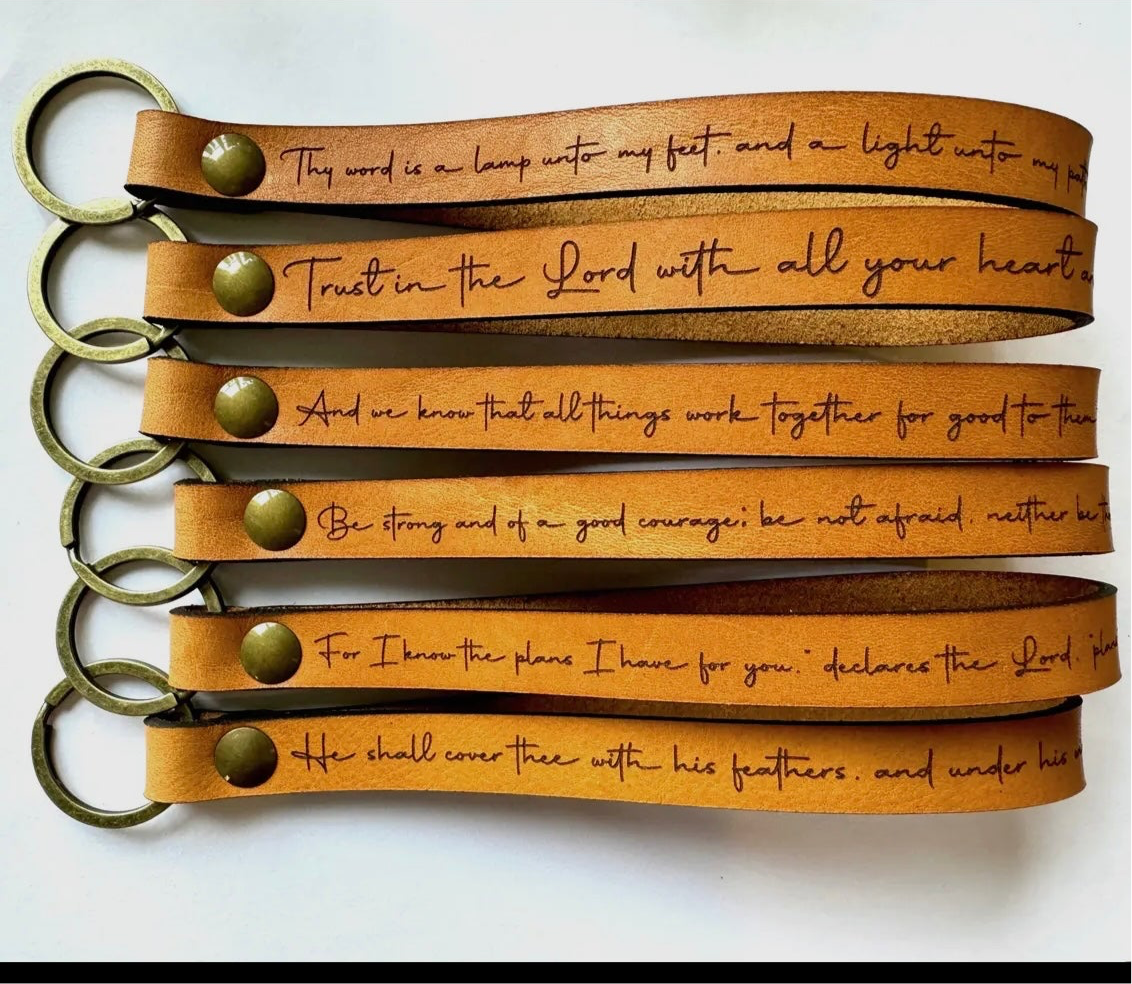 Thy word is a lamp unto my feet. and a light unto my
Trust in the Lord with all your heart
And we know that all things work together for good to them
Be strong and of a good courage; be not afraid. neither be
For I know the plans I have for you." declares the Lord. "plan
He shall cover thee with his feathers. and under his